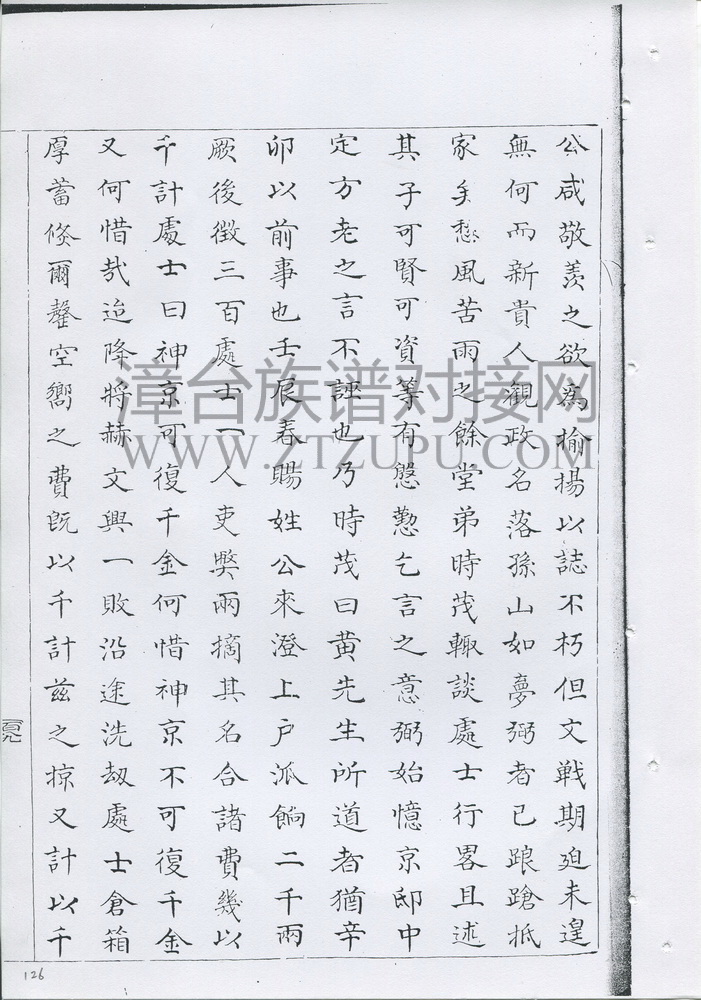 公咸敬羨之欲為揄揚以誌不朽但文戰期廹未遑
無何而新貴人觀政名落孫山如夢弼者已踉蹌抵
家矣愁風苦雨之餘堂弟時茂輙談處士行畧且述
其子可賢可資等有慇懃乞言之意弼始憶京邸中
定方老之言不誣也乃時茂曰黃先生所道者猶辛
卯以前事也壬辰春賜姓公來澄上戶派餉二千兩
厥後徵三百處士一人吏獘兩摘其名合諸費幾以
千計處士曰神京可復千金何惜神京不可復千金
又何惜㢤迨降將赫文興一敗沿途洗刼處士倉箱
厚蓄倐爾罄空嚮之費旣以千計兹之掠又計以千
126
漳台族谱对接网
WWW.ZTZUPU.COM